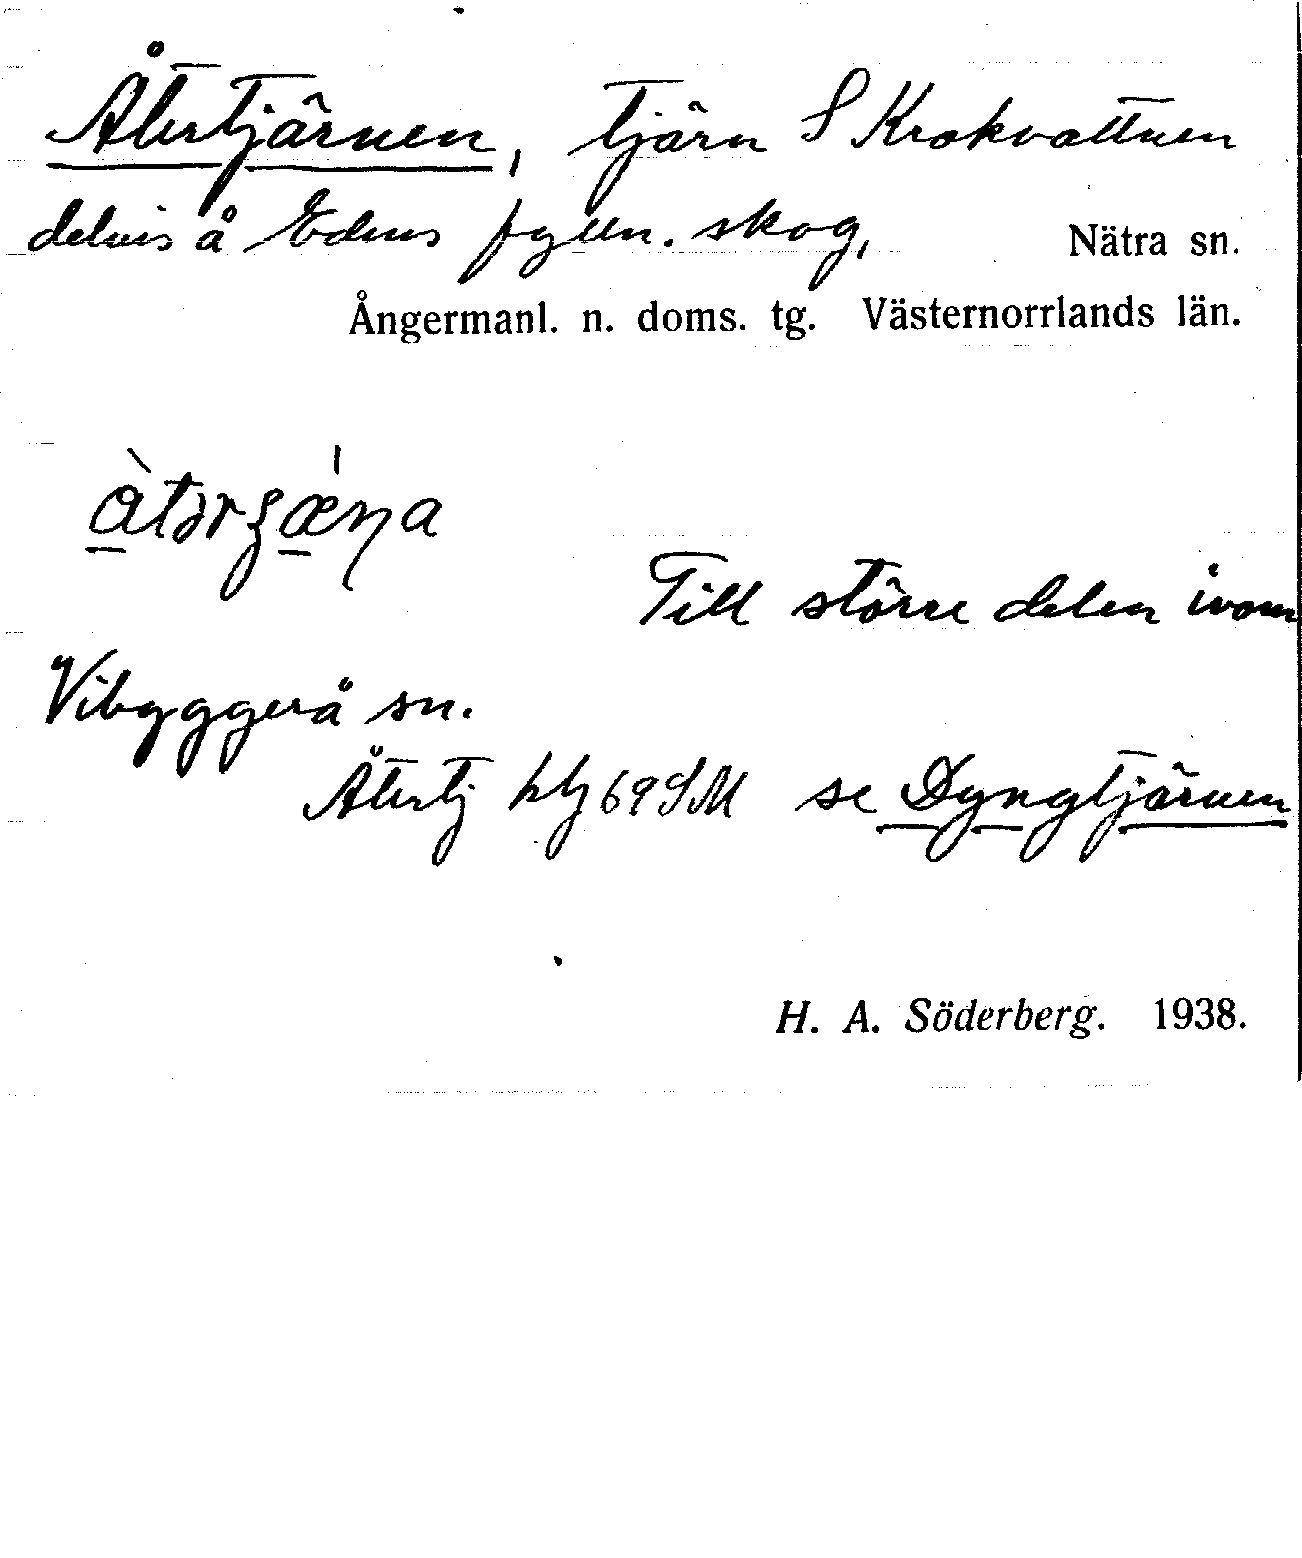 Återtjärnen, tjärn S Krokvattnen
delvis å Edens fylln. skog,
Nätra sn.
Ångermanl. n. doms. tg. Västernorrlands län.
Till större delen inom
Vibyggerå sn.
Återtj 69 SM se Dyngtjärnen
H. A. Söderberg. 1938.